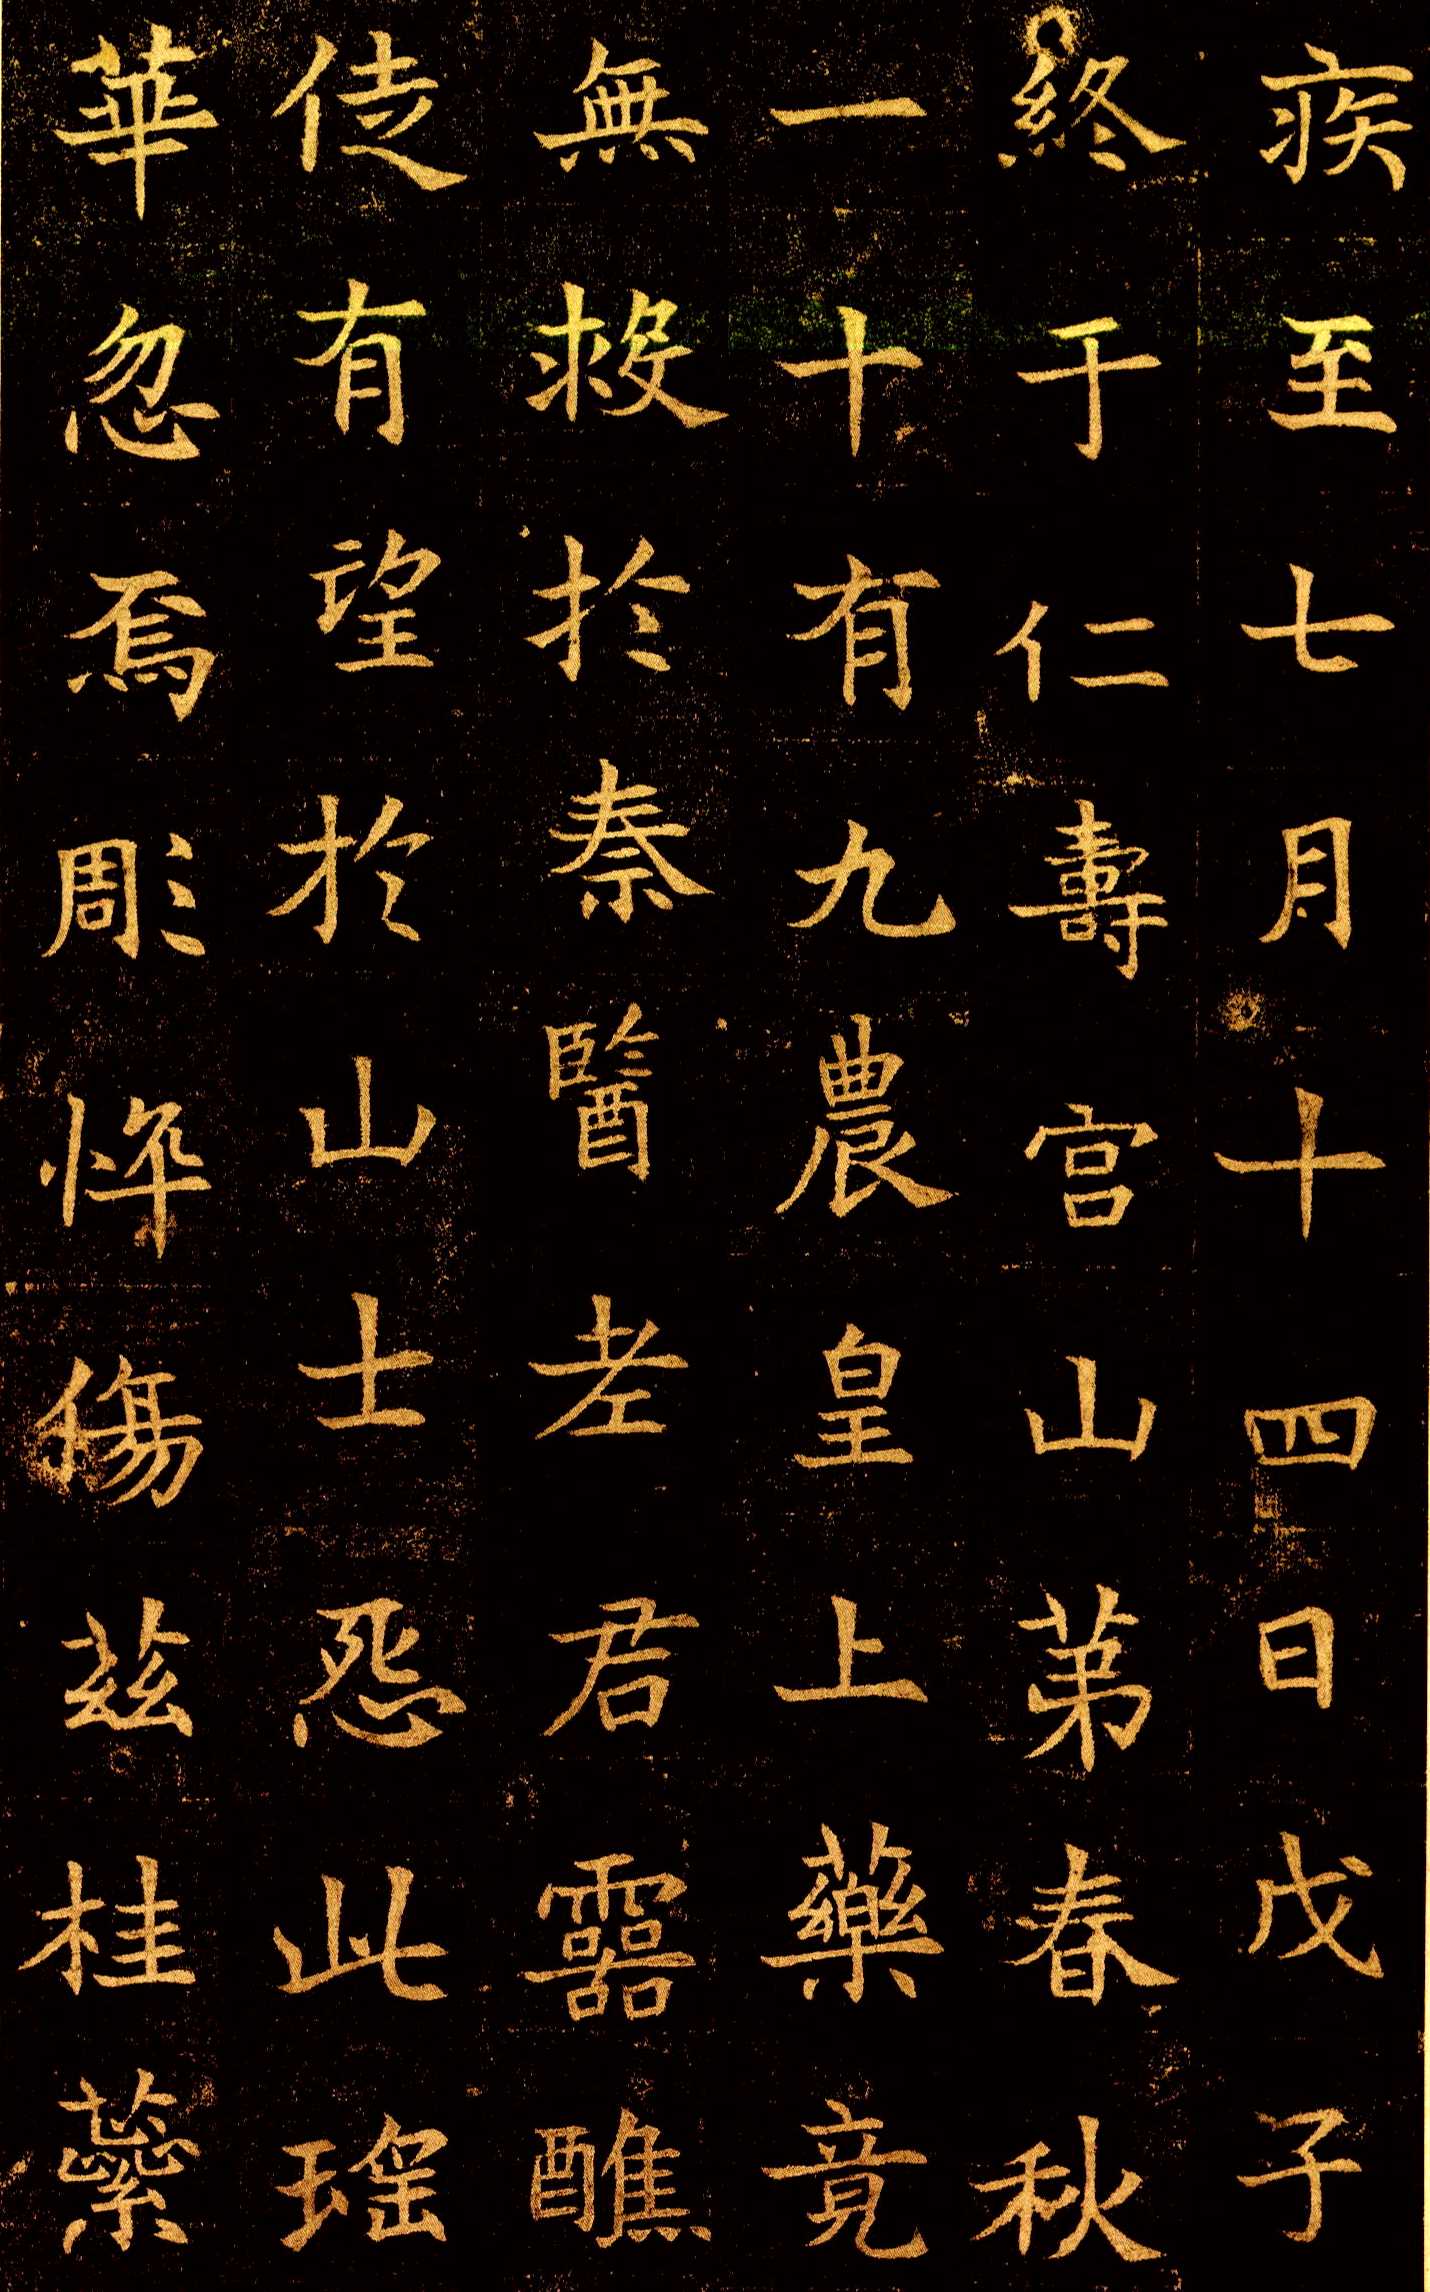 疾至七月十四日戊子
終于仁壽宮山第春秋
一十有九農皇上藥竟
無救於秦醫老君靈醮
徒有望於山士怨此瑤
華忽焉彫悴傷茲桂蘂